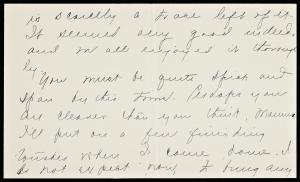 is scarcely a trace left of it.
It seemed very good indeed
and we all enjoyed it thorough
ly.
You must be quite spick and
span by this time. Perhaps you
are cleaner than you think, Mamma
I'll put on a few finishing
touches where I come home. I
do not expect now, to bring any